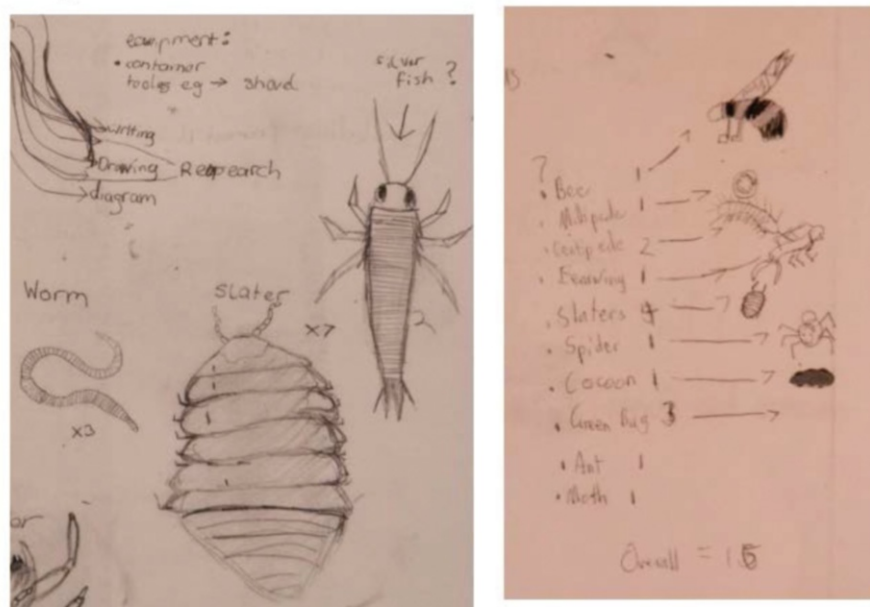 equipment:
• container
tools eg → shovel
silver
fish ?
→ writing
→ Drawing Research
→ diagram
Worm
x3
Slater
x7
2
?
• Bee 1
• Millipede 1
• Centipede 2
• Earwing 1
• Slaters 4
• Spider 1
• Cocoon 1
• Green Bug 3
• Ant 1
• Moth 1
Overall = 15